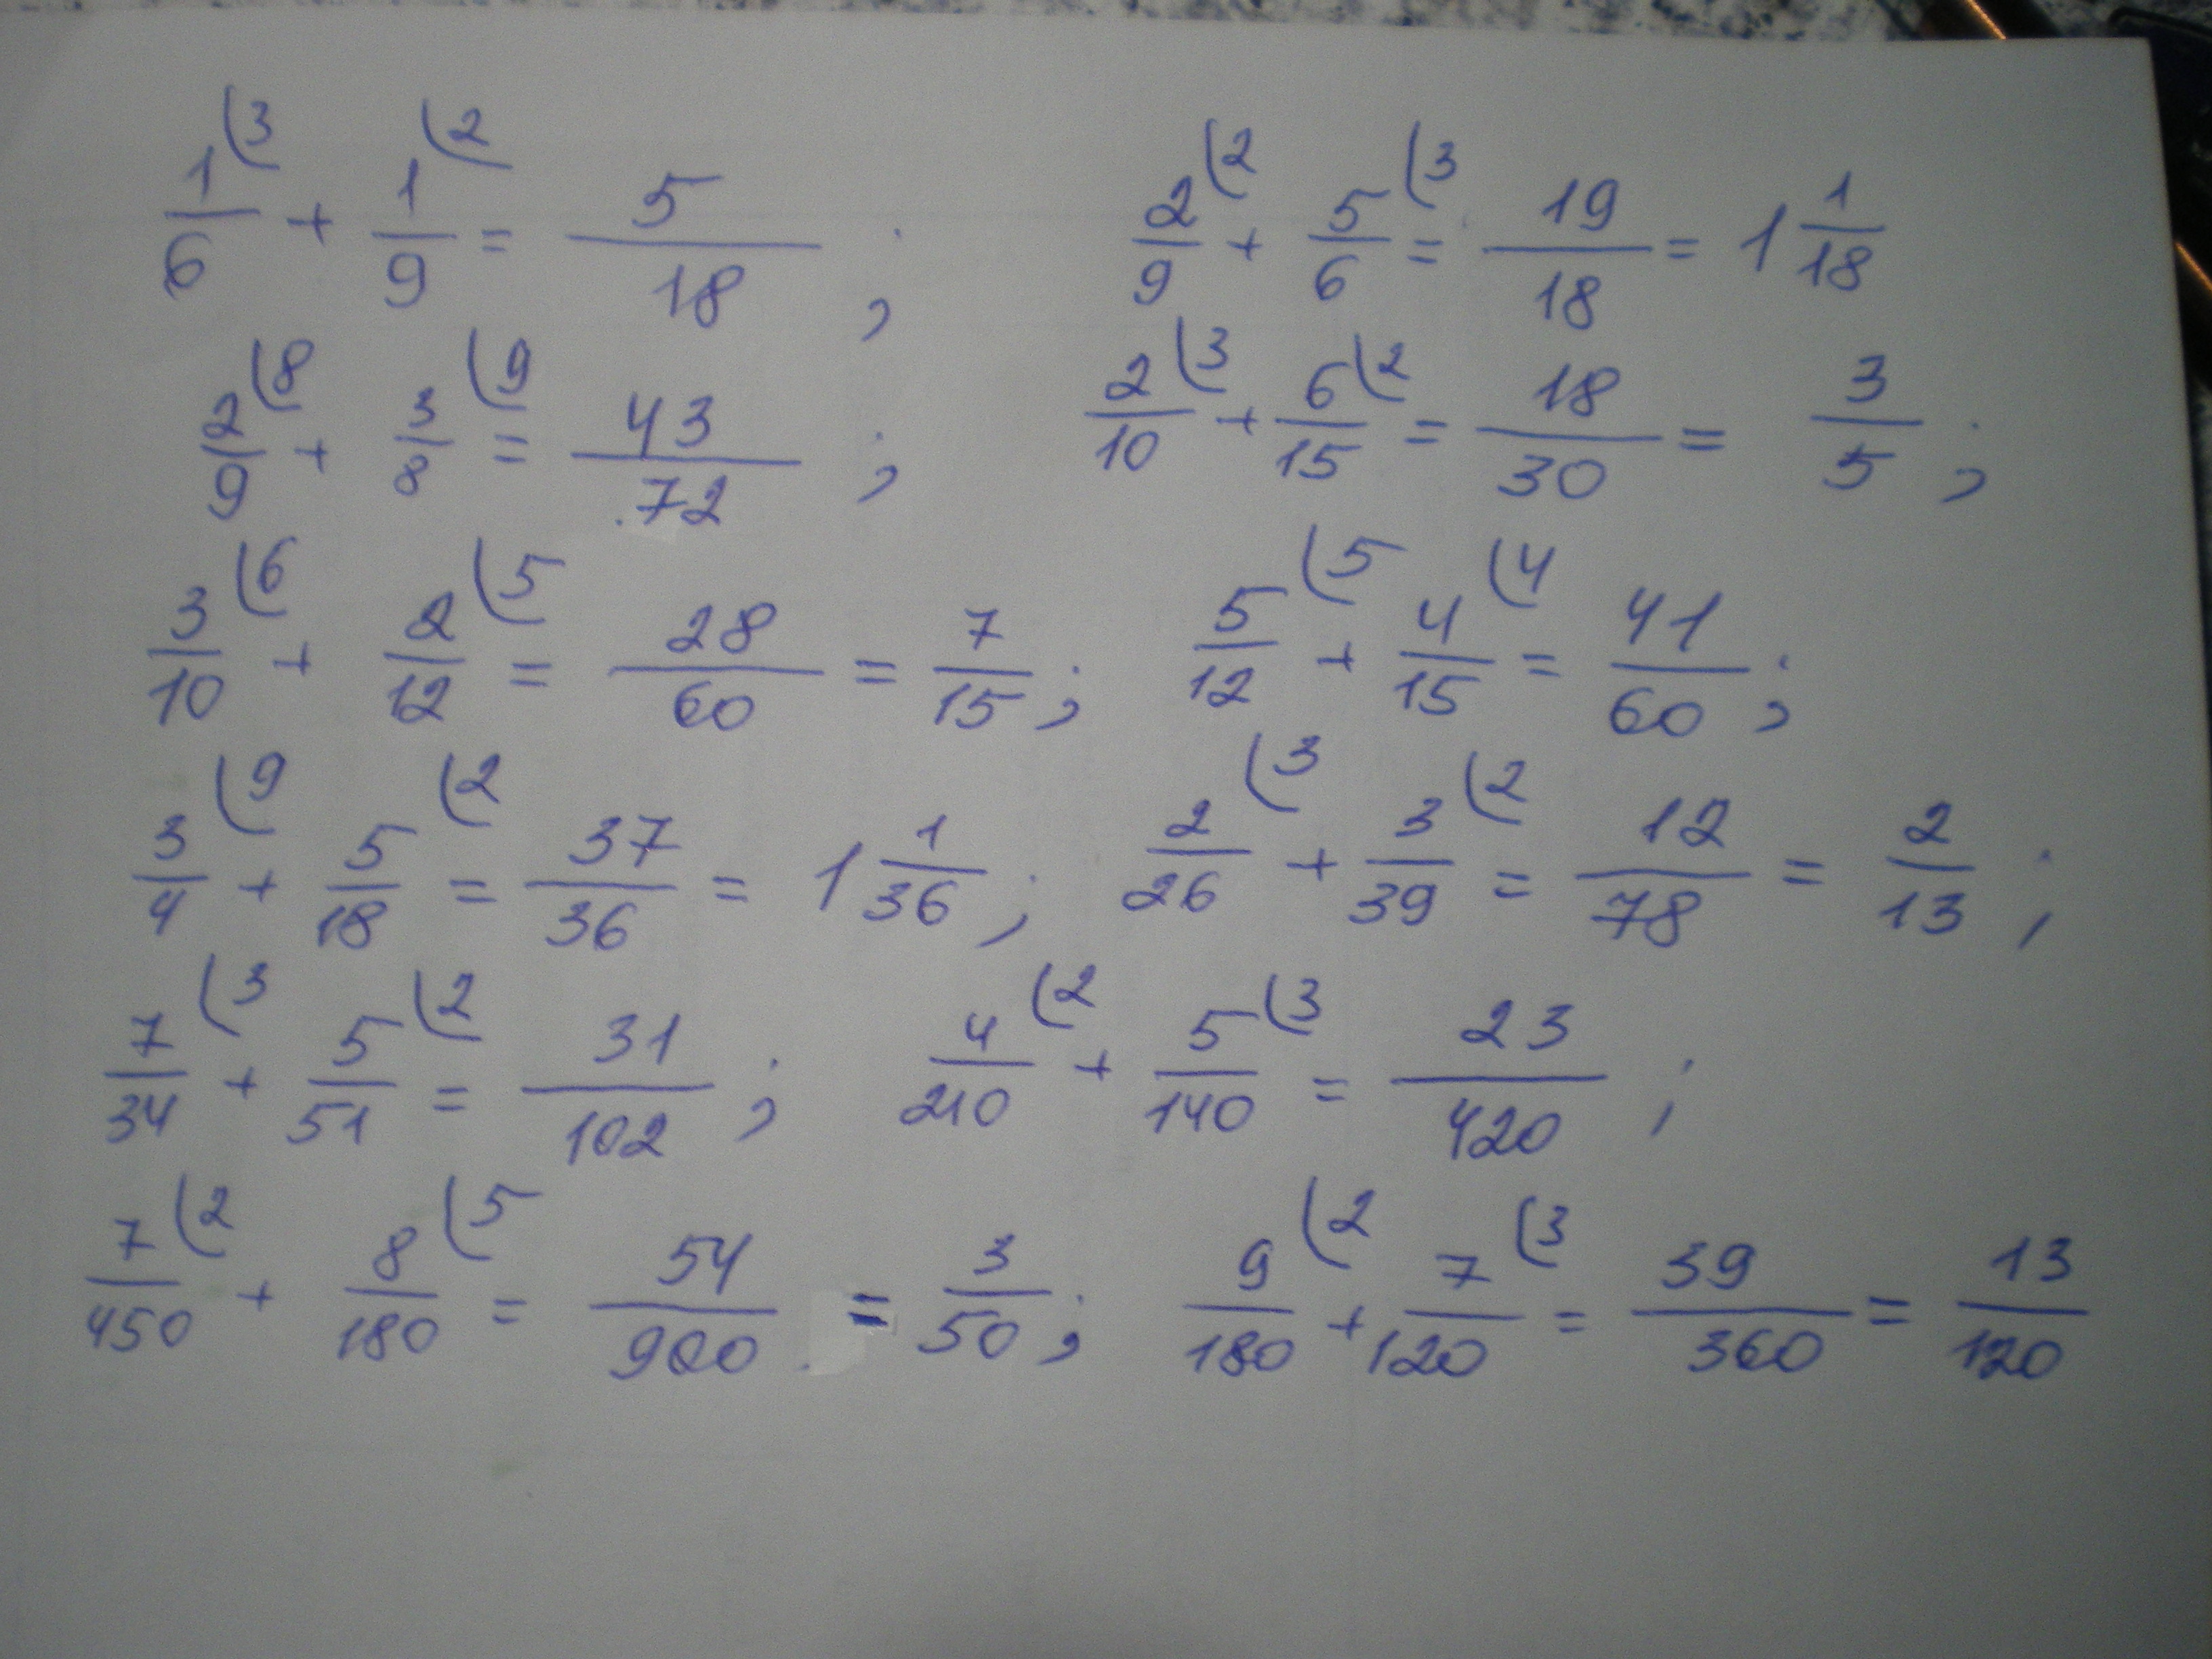 1/6 (3 + 1/9 (2 = 5/18 ; 2/9 (2 + 5/6 (3 = 19/18 = 1 1/18
2/9 (8 + 3/8 (9 = 43/72 ; 2/10 (3 + 6/15 (2 = 18/30 = 3/5 ;
3/10 (6 + 2/12 (5 = 28/60 = 7/15 ; 5/12 (5 + 4/15 (4 = 41/60 ;
3/4 (9 + 5/18 (2 = 37/36 = 1 1/36 ; 2/26 (3 + 3/39 (2 = 12/78 = 2/13 ;
7/34 (3 + 5/51 (2 = 31/102 ; 4/210 (2 + 5/140 (3 = 23/420 ;
7/450 (2 + 8/180 (5 = 54/900 = 3/50 ; 9/180 (2 + 7/120 (3 = 39/360 = 13/120